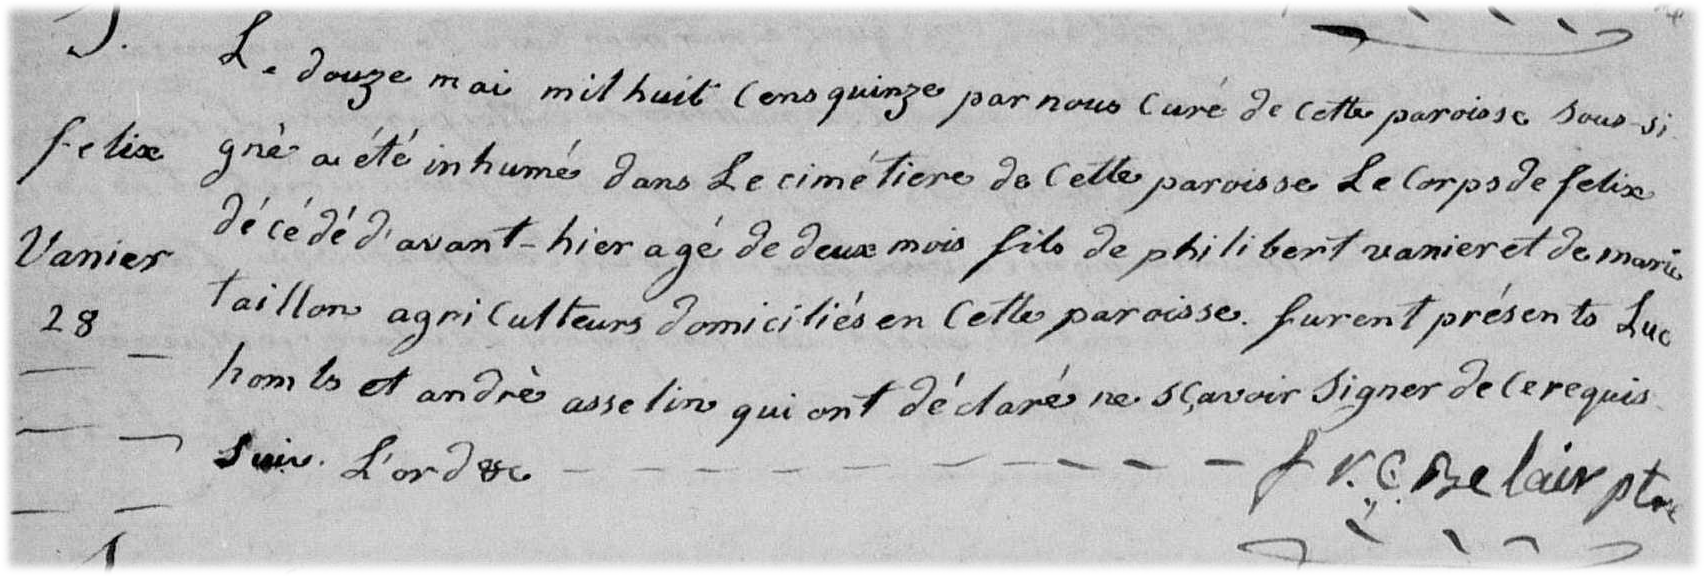 S.
felix
Vanier
28
Le douze mai mil huit cens quinze par nous curé de cette paroisse sous-si
gné a été inhumé dans Le cimétiere de cette paroisse Le corps de felix
décédé d'avant-hier agé de deux mois fils de philibert vanier et de marie
taillon agriculteurs domiciliés en cette paroisse. furent présents Luc
homls et andrè asselin qui ont déclaré ne sçavoir signer de ce requis
suiv. L'ord &c
fr. C. Belair ptre